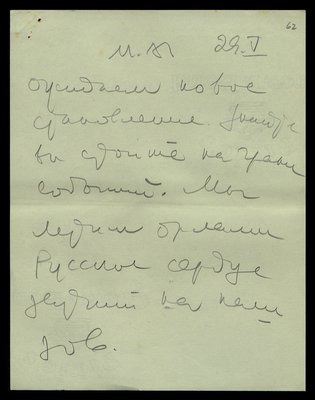 62
М.А 29.V
ожидаем новое
становление.
вы стоите на грани
событий. Мы
летим орлами
Русское сердце
на наш
зов.